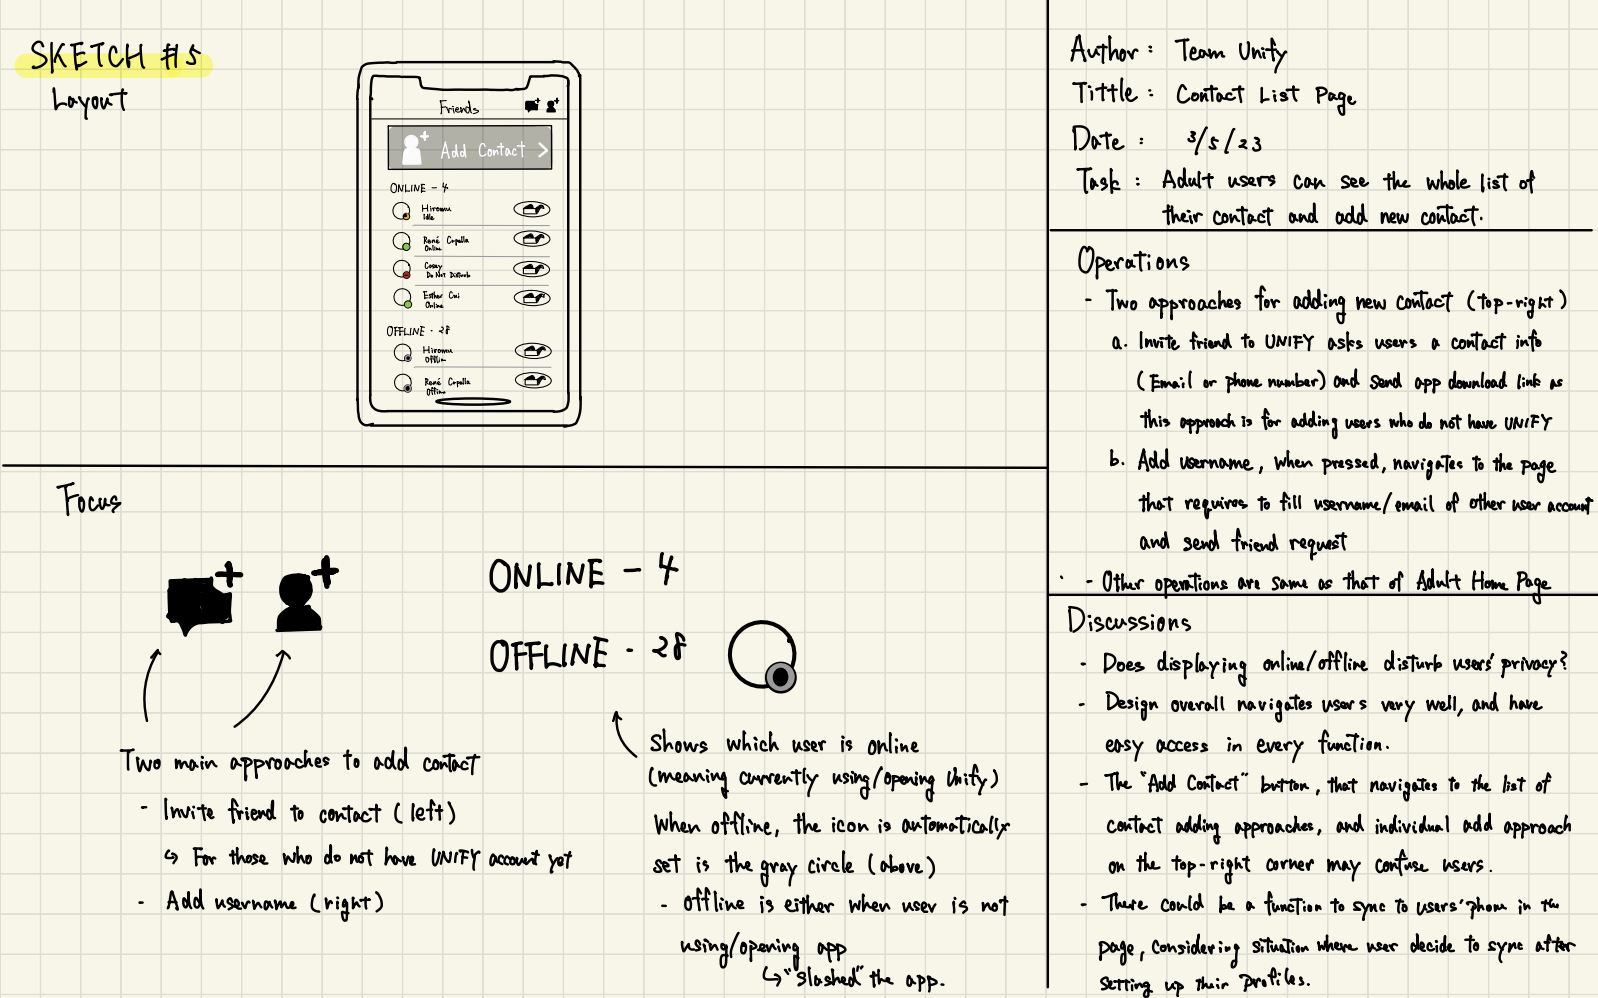 SKETCH #5
Layout
Friends
Add Contact >
ONLINE - 4
Hiromu
Idle
René Capella
Online
Casey
Do Not Disturb
Esther Cui
Online
OFFLINE - 28
Hiromu
Offline
René Capella
Offline
Focus
Two main approaches to add contact
- Invite friend to contact (left)
↳ For those who do not have UNIFY account yet
- Add username (right)
ONLINE - 4
OFFLINE - 28
Shows which user is online
(meaning currently using/opening Unify)
When offline, the icon is automatically
set is the gray circle (above)
- Offline is either when user is not
using/opening app
↳ "slashed" the app.
Author : Team Unify
Tittle : Contact List Page
Date : 3/5/23
Task : Adult users can see the whole list of
their contact and add new contact.
Operations
- Two approaches for adding new contact (top-right)
a. Invite friend to UNIFY asks users a contact info
(Email or phone number) and send app download link as
this approach is for adding users who do not have UNIFY
b. Add username, when pressed, navigates to the page
that requires to fill username/email of other user account
and send friend request
- Other operations are same as that of Adult Home Page
Discussions
- Does displaying online/offline disturb users' privacy?
- Design overall navigates users very well, and have
easy access in every function.
- The "Add Contact" button, that navigates to the list of
contact adding approaches, and individual add approach
on the top-right corner may confuse users.
- There could be a function to sync to users' phone in the
page, considering situation where user decide to sync after
setting up their profiles.